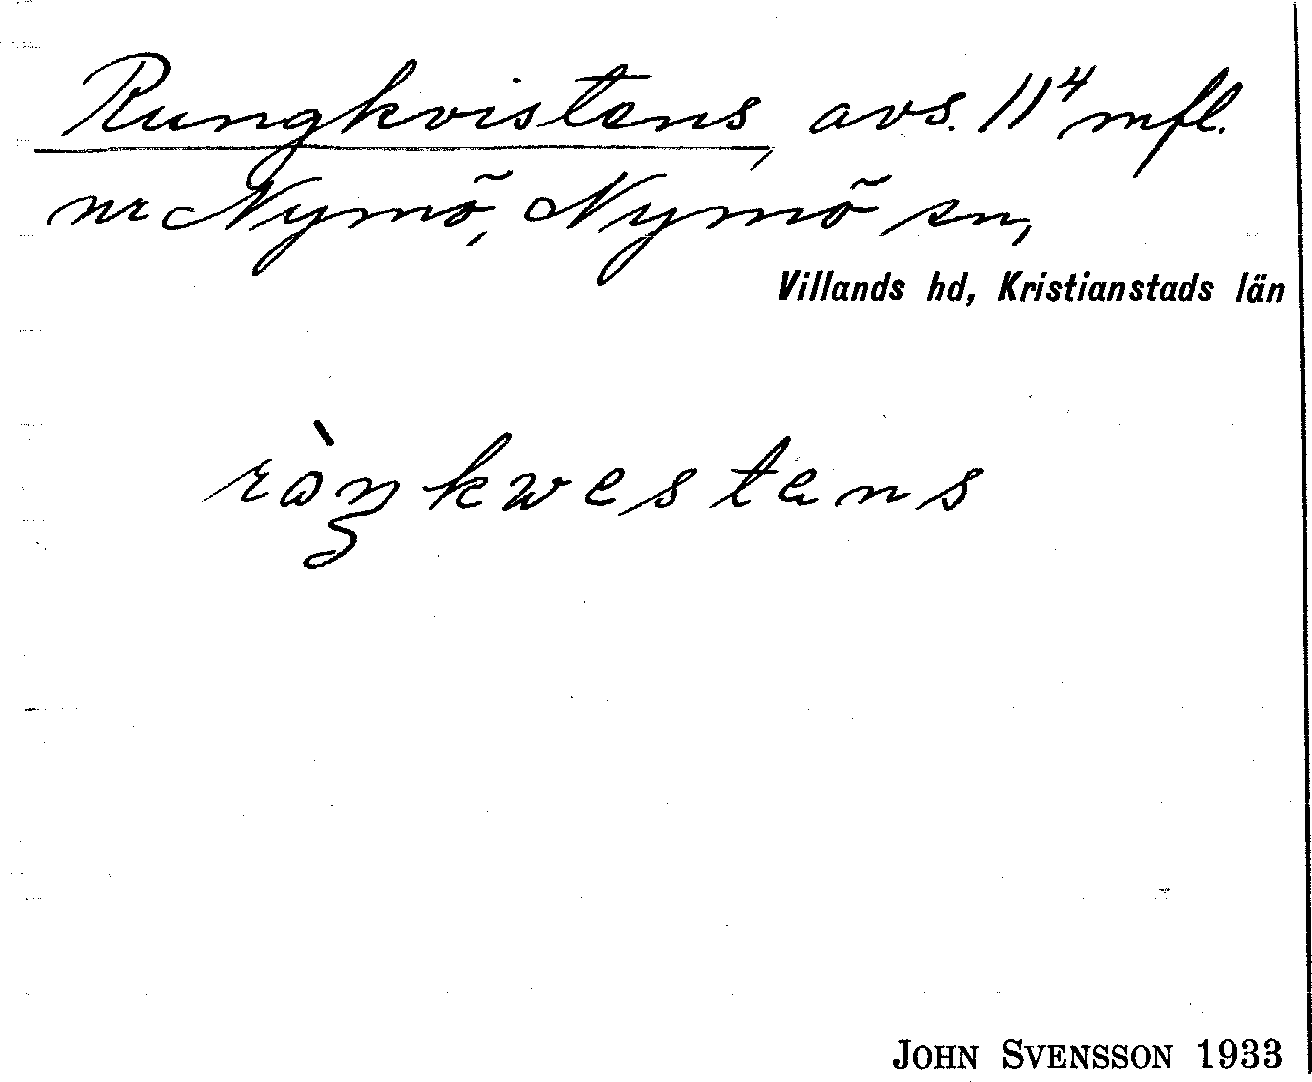 Rungkvistens, avs. 11⁴ mfl.
nr Nymö, Nymö sn,
Villands hd, Kristianstads län
rὰŋkwestens
JOHN SVENSSON 1933